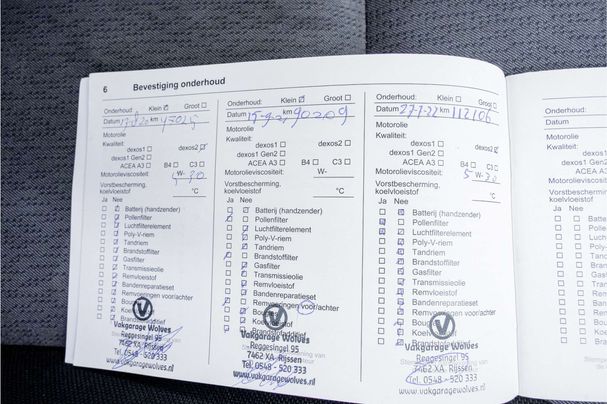 6 Bevestiging onderhoud
Onderhoud: Klein Groot
Datum km
Motorolie
Kwaliteit:
dexos1 dexos2
dexos1 Gen2
ACEA A3 B4 C3
Motorolieviscositeit: W-30
Vorstbescherming, koelvloeistof °C
Ja Nee
Batterij (handzender)
Pollenfilter
Luchtfilterelement
Poly-V-riem
Tandriem
Brandstoffilter
Gasfilter
Transmissieolie
Remvloeistof
Bandenreparatieset
Remvoeringen voor/achter
Vakgarage Wolves
Reggesingel 95
7462 XA Rijssen
Tel. 0548 - 520 333
www.vakgaragewolves.nl
Onderhoud: Klein Groot
Datum km 90209
Motorolie
Kwaliteit:
dexos1 dexos2
dexos1 Gen2
ACEA A3 B4 C3
Motorolieviscositeit: W-
Vorstbescherming, koelvloeistof °C
Ja Nee
Batterij (handzender)
Pollenfilter
Luchtfilterelement
Poly-V-riem
Tandriem
Brandstoffilter
Gasfilter
Transmissieolie
Remvloeistof
Bandenreparatieset
Remvoeringen voor/achter
Vakgarage Wolves
Reggesingel 95
7462 XA Rijssen
Tel. 0548 - 520 333
www.vakgaragewolves.nl
Onderhoud: Klein Groot
Datum 27-7-22 km 112106
Motorolie
Kwaliteit:
dexos1 dexos2
dexos1 Gen2
ACEA A3 B4 C3
Motorolieviscositeit: 5 W-30
Vorstbescherming, koelvloeistof °C
Ja Nee
Batterij (handzender)
Pollenfilter
Luchtfilterelement
Poly-V-riem
Tandriem
Brandstoffilter
Gasfilter
Transmissieolie
Remvloeistof
Bandenreparatieset
Remvoeringen voor/achter
Vakgarage Wolves
Reggesingel 95
7462 XA Rijssen
Tel. 0548 - 520 333
www.vakgaragewolves.nl
Onderhoud:
Datum
Motorolie
Kwaliteit:
Motorolieviscositeit
Vorstbescherming
koelvloeistof
Ja Nee